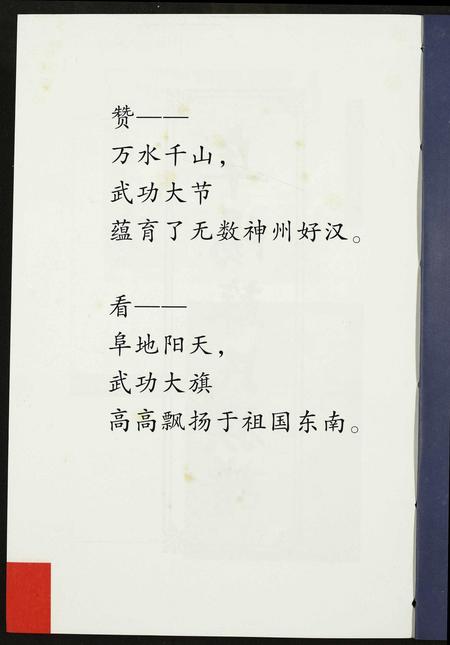 赞——
万水千山，
武功大节
蕴育了无数神州好汉。
看——
阜地阳天，
武功大旗
高高飘扬于祖国东南。